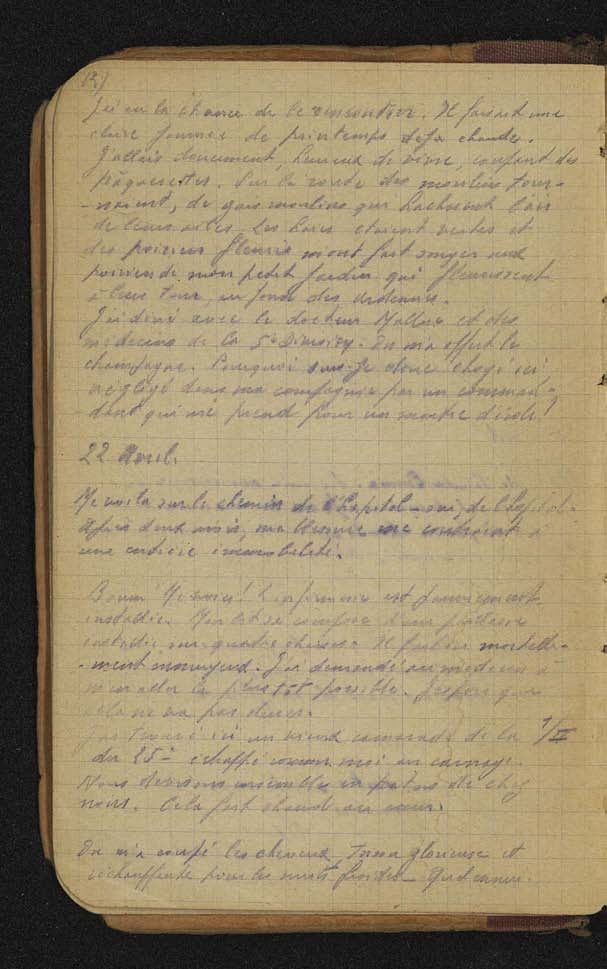 J'ai eu la chance de le rencontrer. Il faisait une
claire journée de printemps déjà chaude.
J'allais doucement, heureux de vivre, coupant des
pâquerettes. Sur la route des moulins tour-
-naient, de gais moulins qui hachaient l'air
de leurs ailes. Les haies étaient vertes et
des poiriers fleuris m'ont fait songer aux
poiriers de mon petit jardin qui fleurissent
à leur tour, au fond des Ardennes.
J'ai diné avec le docteur et des
médecins de la 5e Division. On m'a offert le
champagne. Pourquoi suis-je donc ici
négligé dans ma compagnie par un comman-
-dant qui me prend pour un maître d'école!
22 Avril.
Me voila sur le chemin de l'hopital - oui, de l'hopital.
Après deux mois, ma blessure me contraint à
une entière immobilité.
Bonn! Me voici! L'infirmerie est
installée. Mon lit se compose d'une
installée sur quatre chaises. Il fait un mortelle-
-ment ennuyeux. J'ai demandé au médecin à
m'en aller le plus tôt possible. J'espère que
cela ne va pas durer.
J'ai trouvé ici un vieux camarade de la 1/II
du 25e échappé comme moi au carnage.
Nous devisons ensemble en patois de chez
nous. Cela fait chaud au cœur.
On m'a coupé les cheveux. Toison glorieuse et
réchauffante pour les nuits froides.